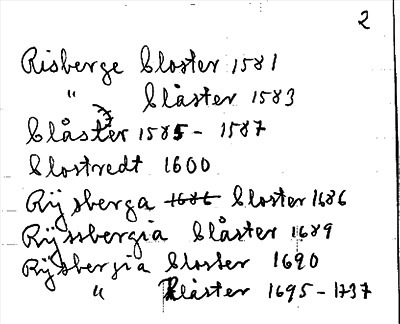 2
Risberge Closter 1581
" Clåster 1583
Clåster 1585 - 1587
Clostredt 1600
Rÿsberga 1686 Closter 1686
Rÿssbergia Clåster 1689
Rÿsbergia Closter 1690
" Klåster 1695 - 1737